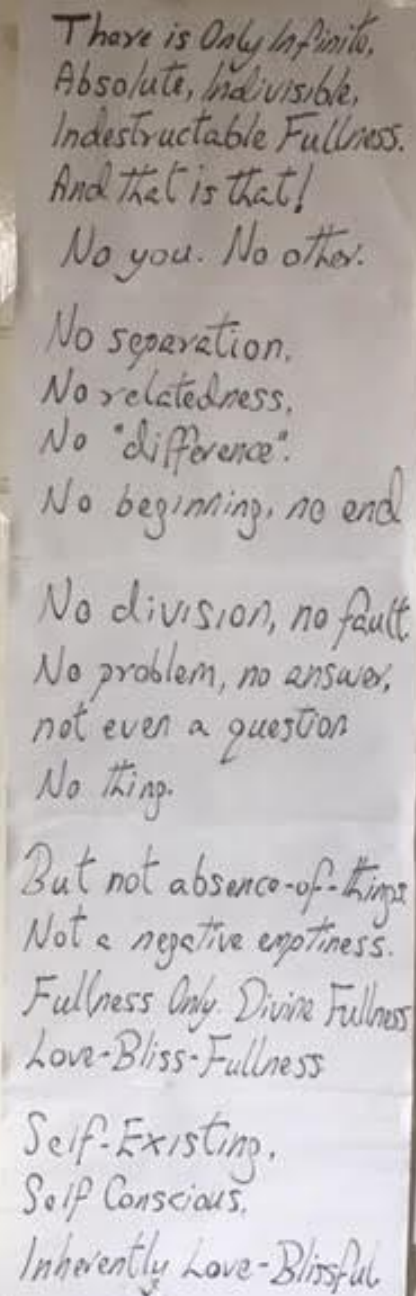 There is Only Infinite,
Absolute, Indivisible,
Indestructable Fullness.
And that is that!
No you. No other.
No separation.
No relatedness.
No "difference".
No beginning, no end
No division, no fault.
No problem, no answer,
not even a question
No thing.
But not absence-of-things
Not a negative emptiness.
Fullness Only. Divine Fullness
Love-Bliss-Fullness
Self-Existing.
Self Conscious.
Inherently Love-Blissful